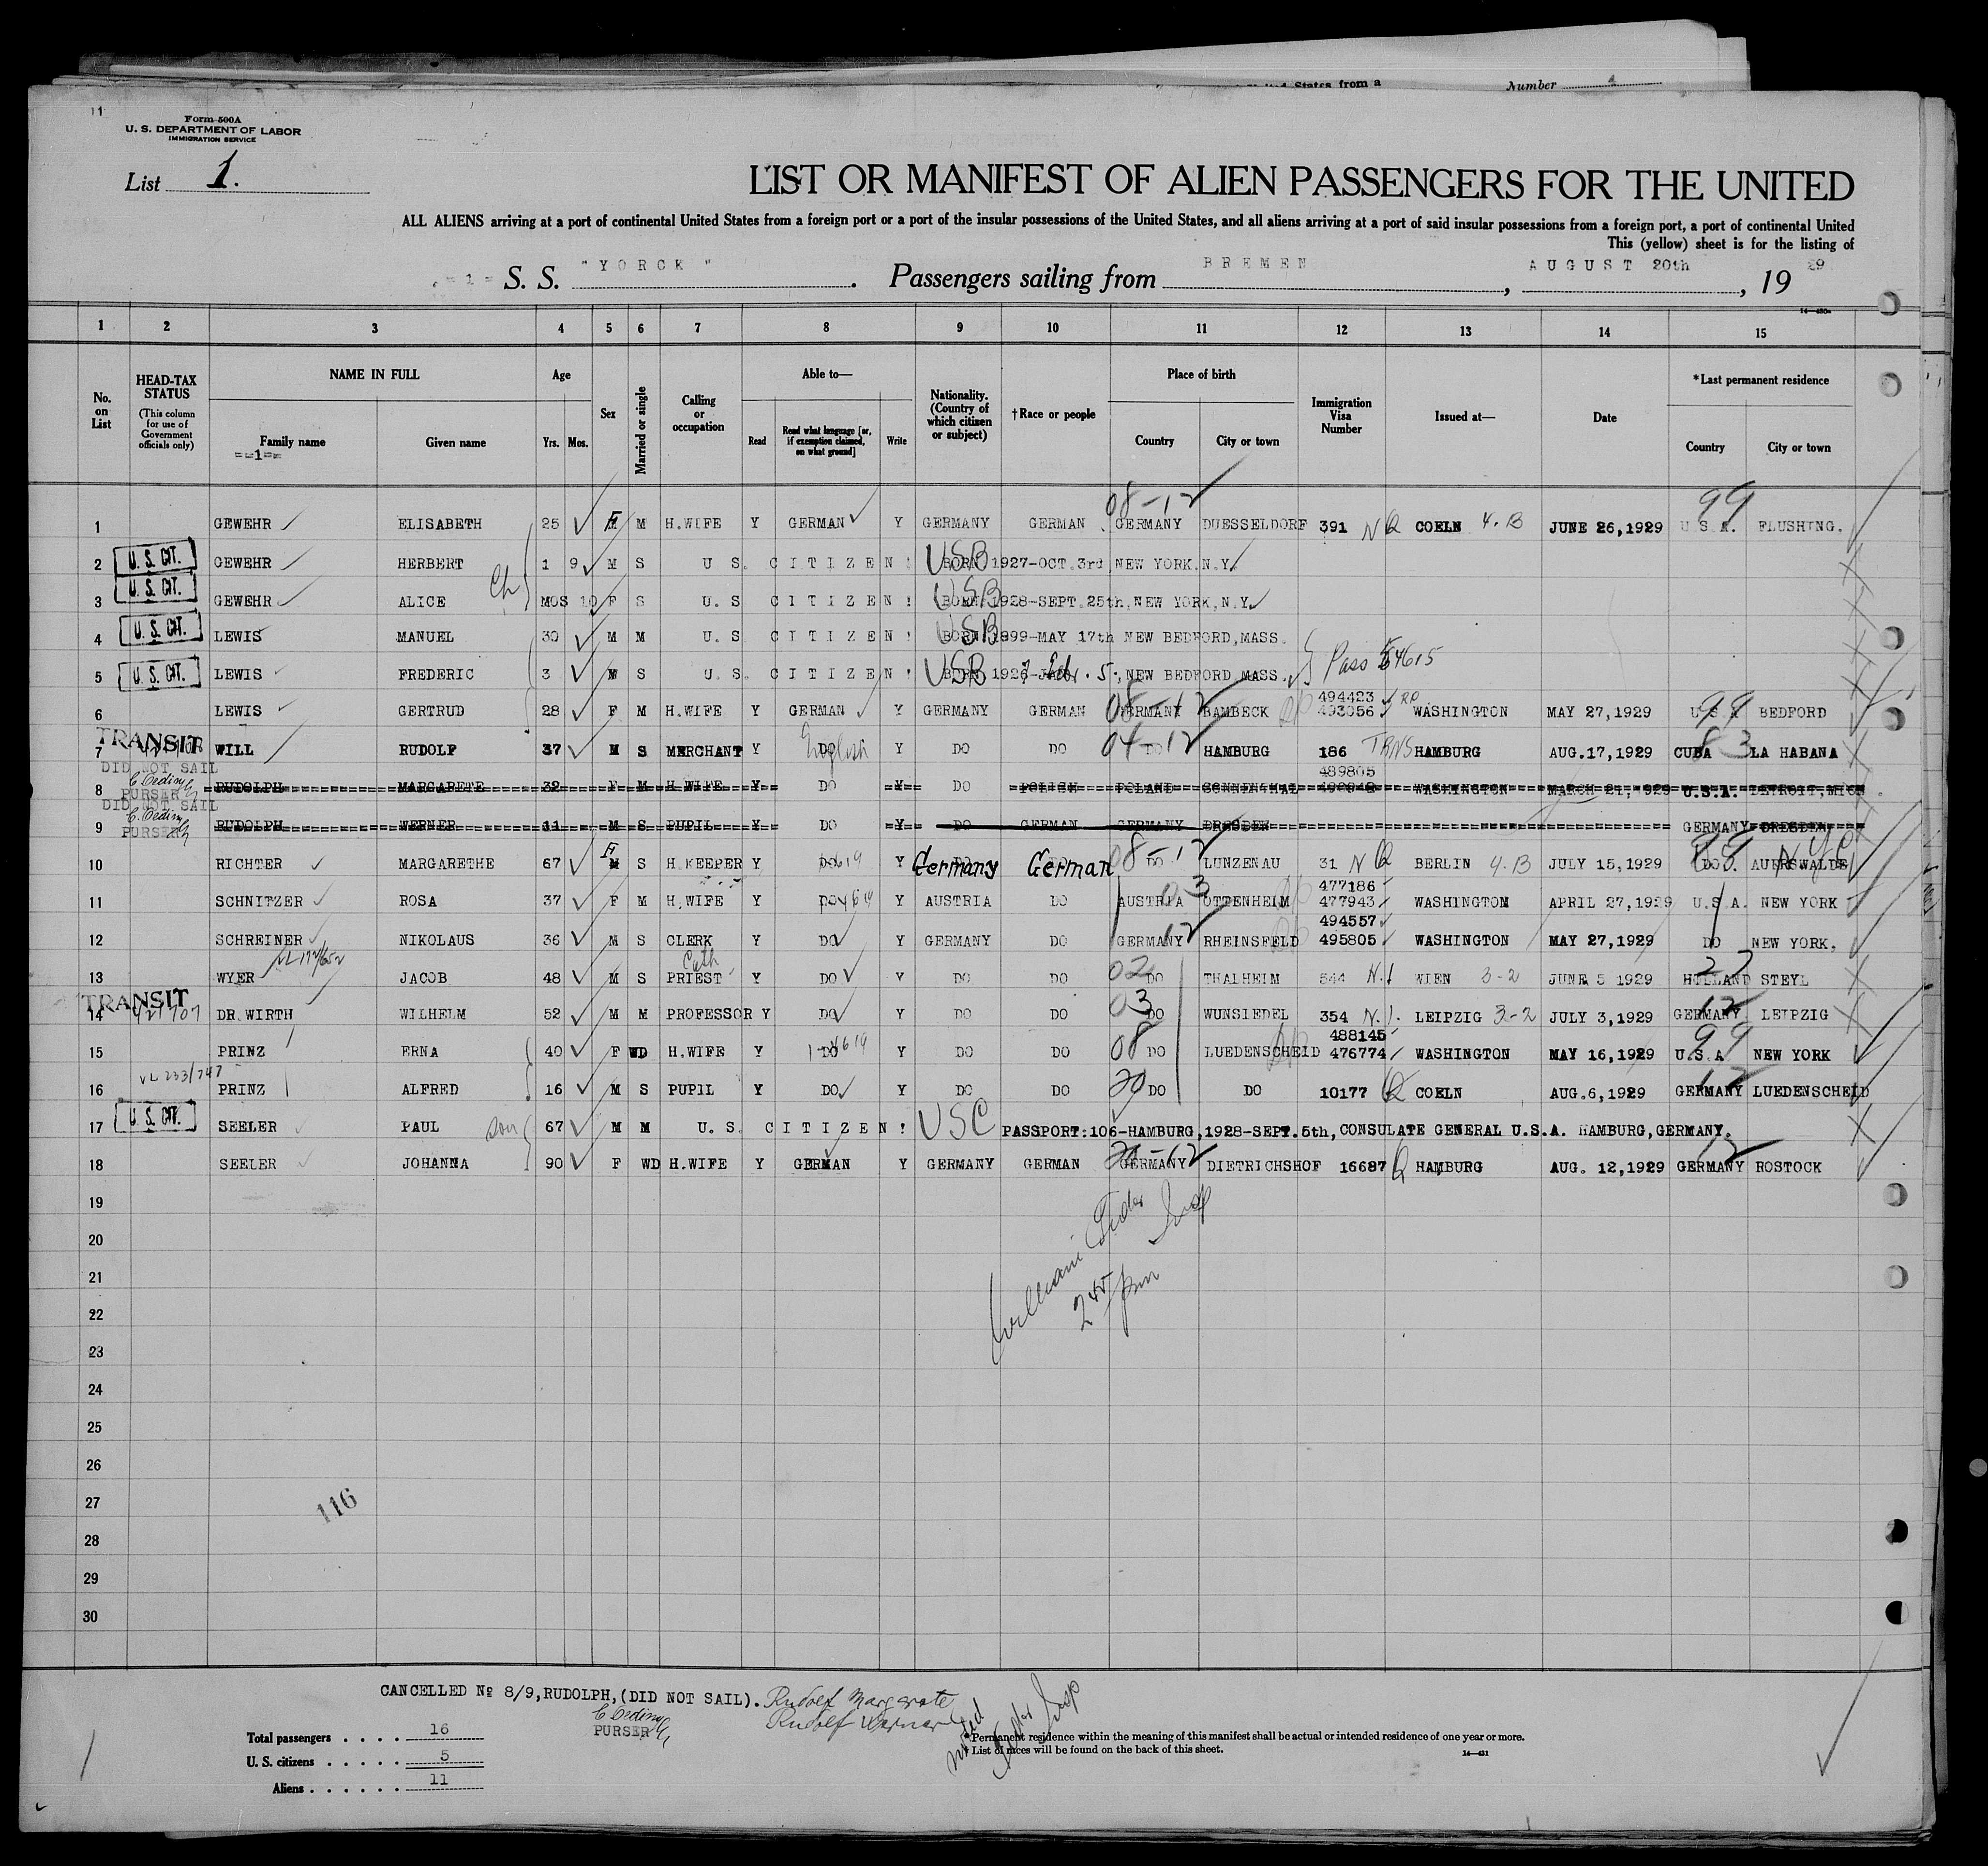 United States from a Number
Form 500A
U. S. DEPARTMENT OF LABOR
IMMIGRATION SERVICE
List 1.
LIST OR MANIFEST OF ALIEN PASSENGERS FOR THE UNITED
ALL ALIENS arriving at a port of continental United States from a foreign port or a port of the insular possessions of the United States, and all aliens arriving at a port of said insular possessions from a foreign port, a port of continental United
This (yellow) sheet is for the listing of
= 1 = S. S. "YORCK". Passengers sailing from BREMEN, AUGUST 20th, 1929
14—430a
1 2 3 4 5 6 7 8 9 10 11 12 13 14 15
No. on List
HEAD-TAX STATUS (This column for use of Government officials only)
NAME IN FULL
Family name
==1==
Given name
Age
Yrs. Mos.
Sex
Married or single
Calling or occupation
Able to—
Read
Read what language [or, if exemption claimed, on what ground]
Write
Nationality. (Country of which citizen or subject)
†Race or people
Place of birth
Country City or town
Immigration Visa Number
Issued at—
Date
*Last permanent residence
Country City or town
08-12 99
1 GEWEHR ELISABETH 25 F M H.WIFE Y GERMAN Y GERMANY GERMAN GERMANY DUESSELDORF 391 NQ COELN 4.B JUNE 26,1929 U.S.A. FLUSHING.
2 U. S. CIT. GEWEHR HERBERT 1 9 M S U S. CITIZEN! USB BORN 1927-OCT.3rd NEW YORK.N.Y.
3 U. S. CIT. GEWEHR ALICE Ch MOS 10 F S U.S CITIZEN! USB BORN 1928-SEPT.25th, NEW YORK,N.Y.
4 U. S. CIT. LEWIS MANUEL 30 M M U.S CITIZEN! USB BORN 1899-MAY 17th NEW BEDFORD,MASS.
5 U. S. CIT. LEWIS FREDERIC 3 M S U.S. CITIZEN! USB BORN 1926- 5., NEW BEDFORD MASS. Pass 54615
494423
6 LEWIS GERTRUD 28 F M H.WIFE Y GERMAN Y GERMANY GERMAN 08-12 GERMANY BAMBECK 493056 WASHINGTON MAY 27,1929 99 U.S.A BEDFORD
7 TRANSIT WILL RUDOLF 37 M S MERCHANT Y DO English Y DO DO 04-12 DO HAMBURG 186 TRNS HAMBURG AUG.17,1929 CUBA 83 LA HABANA
DID NOT SAIL
489805
8 PURSER RUDOLPH MARGARETE 32 F M H.WIFE Y DO Y DO POLISH POLAND WASHINGTON MARCH 21,1929 U.S.A. DETROIT,MICH.
DID NOT SAIL
9 PURSER RUDOLPH WERNER 11 M S PUPIL Y DO Y DO GERMAN GERMANY DRESDEN GERMANY DRESDEN
10 RICHTER MARGARETHE 67 F S H.KEEPER Y DO Y Germany German 08-12 DO LUNZENAU 31 NQ BERLIN 4.B JULY 15,1929 99 DO NYC AUERSWALDE
477186
11 SCHNITZER ROSA 37 F M H.WIFE Y DO Y AUSTRIA DO 03 AUSTRIA OTTENHEIM 477943 WASHINGTON APRIL 27,1929 U.S.A. NEW YORK
494557
12 SCHREINER NIKOLAUS 36 M S CLERK Y DO Y GERMANY DO 12 GERMANY RHEINSFELD 495805 WASHINGTON MAY 27,1929 DO NEW YORK.
13 WYER JACOB 48 M S Cath PRIEST Y DO Y DO DO 02 DO THALHEIM 544 N.I WIEN 3-2 JUNE 5 1929 27 HOLLAND STEYL
14 TRANSIT DR.WIRTH WILHELM 52 M M PROFESSOR Y DO Y DO DO 03 DO WUNSIEDEL 354 N.I. LEIPZIG 3-2 JULY 3,1929 12 GERMANY LEIPZIG
488145
15 PRINZ ERNA 40 F WD H.WIFE Y DO Y DO DO 08 DO LUEDENSCHEID 476774 WASHINGTON MAY 16,1929 99 U.S.A NEW YORK
16 PRINZ ALFRED 16 M S PUPIL Y DO Y DO DO 20 DO DO 10177 Q COELN AUG.6,1929 12 GERMANY LUEDENSCHEID
17 U. S. CIT. SEELER PAUL son 67 M M U.S. CITIZEN! USC PASSPORT:106-HAMBURG,1928-SEPT.5th, CONSULATE GENERAL U.S.A. HAMBURG,GERMANY.
18 SEELER JOHANNA 90 F WD H.WIFE Y GERMAN Y GERMANY GERMAN 20-12 GERMANY DIETRICHSHOF 16687 Q HAMBURG AUG. 12,1929 12 GERMANY ROSTOCK
19
20
21
22
23
24
25
26
27
28
29
30
116
CANCELLED № 8/9,RUDOLPH,(DID NOT SAIL). Rudolf Margarete
Rudolf Werner
PURSER
Total passengers . . . . 16
U. S. citizens . . . . . 5
Aliens . . . . . . 11
* Permanent residence within the meaning of this manifest shall be actual or intended residence of one year or more.
† List of races will be found on the back of this sheet.
14—431